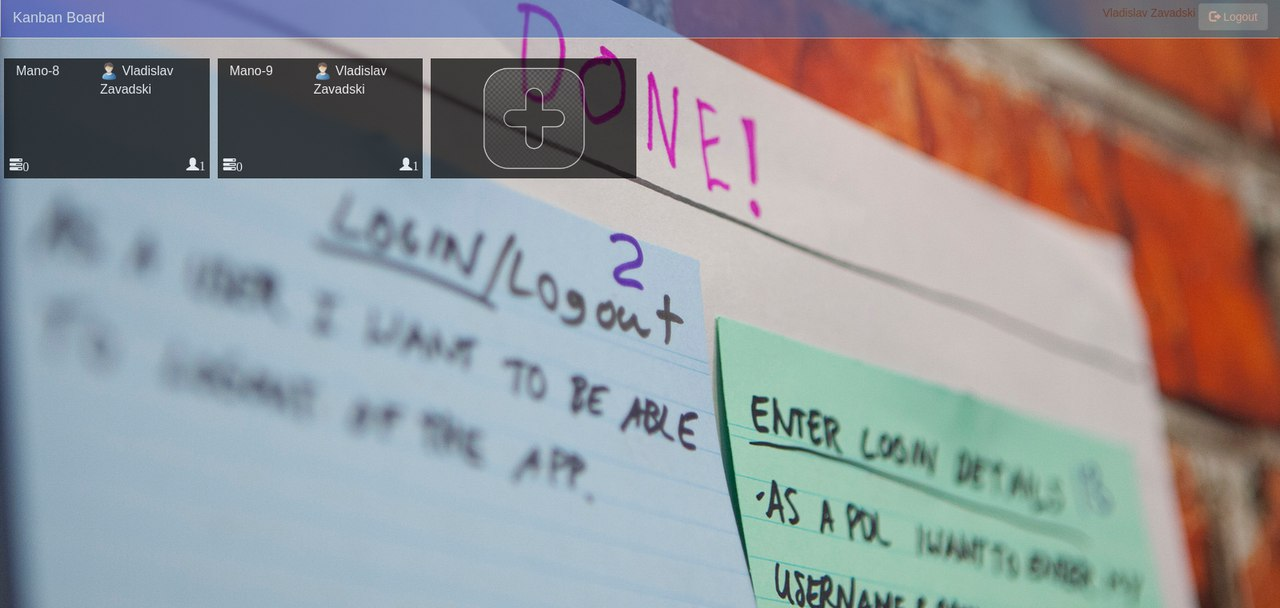 Kanban Board
Vladislav Zavadski
Logout
Mano-8
Vladislav
Zavadski
0
1
Mano-9
Vladislav
Zavadski
0
1
DONE!
2
LOGIN/Logout
AS A USER I WANT TO BE ABLE
TO LOGOUT OF THE APP.
ENTER LOGIN DETAILS
·AS A POL I WANT TO ENTER MY
USERNAME